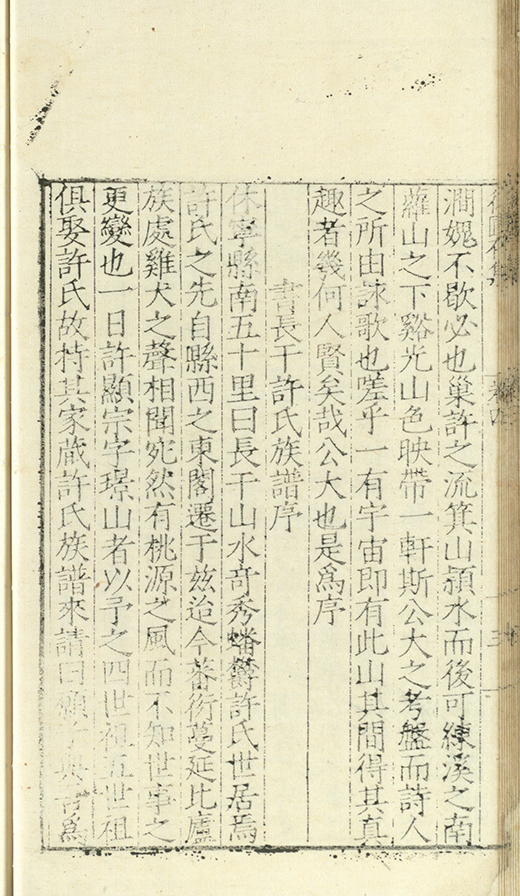 澗媿不歇必也巢許之流箕山潁水而後可練溪之南
蘿山之下谿光山色映帶一軒斯公大之考盤而詩人
之所由詠歌也嗟乎一有宇宙即有此山其間得其真
趣者幾何人賢矣哉公大也是爲序
書長干許氏族譜序
休寧縣南五十里曰長干山水竒秀蟠欝許氏世居焉
許氏之先自縣西之東閣遷于兹迨今蕃衍蔓延比廬
族處雞犬之聲相聞宛然有桃源之風而不知世事之
更變也一日許顯宗字璟山者以予之四世祖五世祖
俱娶許氏故持其家蔵許氏族譜來請曰願子與言爲